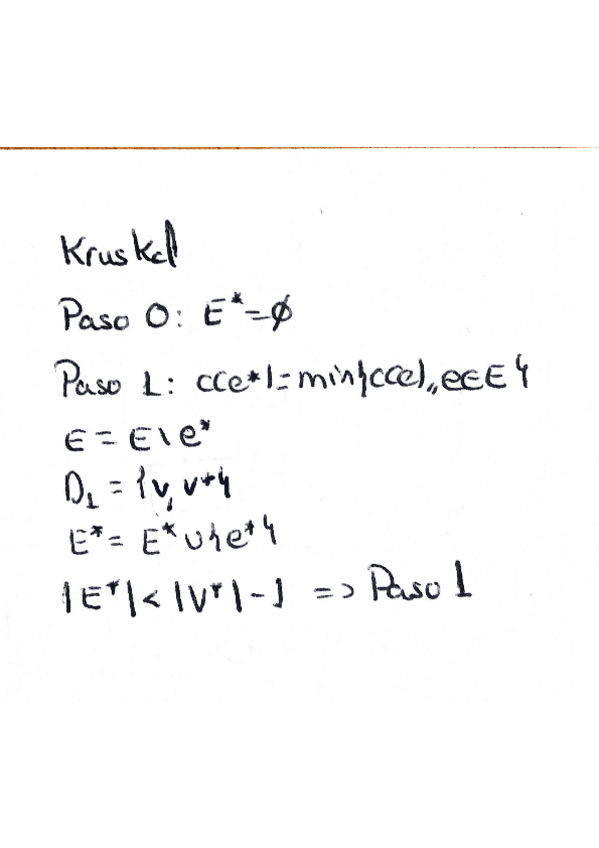 Kruskal
Paso 0: E*=∅
Paso 1: c(e*)=min{c(e),,e∈E}
E = E\e*
D₁ = {v, v*}
E* = E* ∪ {e*}
|E*| < |V*|-1 => Paso 1